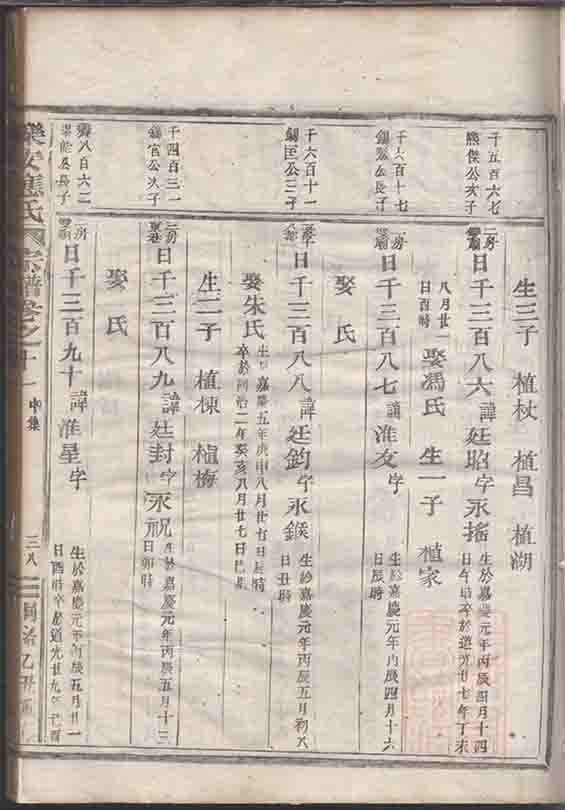 千五百六七
熊傑公次子
生三子 植杖 植昌 植湖
二房
日千三百八六 諱廷昭 字永搖 生於嘉慶元年丙辰四月十四
日午時卒於道光廿七年丁未
八月廿一
日酉時
娶馮氏 生一子 植家
千六百十七
公長子
房
日千三百八七 諱淮友 字 生於嘉慶元年丙辰四月十六
日辰時
娶 氏
千六百十一
錫匡公三子
日千三百八八 諱廷鈞 字永鍭 生於嘉慶元年丙辰五月初八
日丑時
娶朱氏 生於嘉慶五年庚申八月廿七日辰時
卒於同治二年癸亥八月廿七日巳時
生二子 植棟 植梅
千四百三一
錫官公次子
二房
日千三百八九 諱廷封 字永祝 生於嘉慶元年丙辰五月十三
日卯時
娶 氏
八百六二
公長子
二房
日千三百九十 諱淮星 字 生於嘉慶元年丙辰五月廿一
日酉時卒於道光廿九年己酉
樂安應氏宗譜卷之十一 中集 三八 同治乙丑